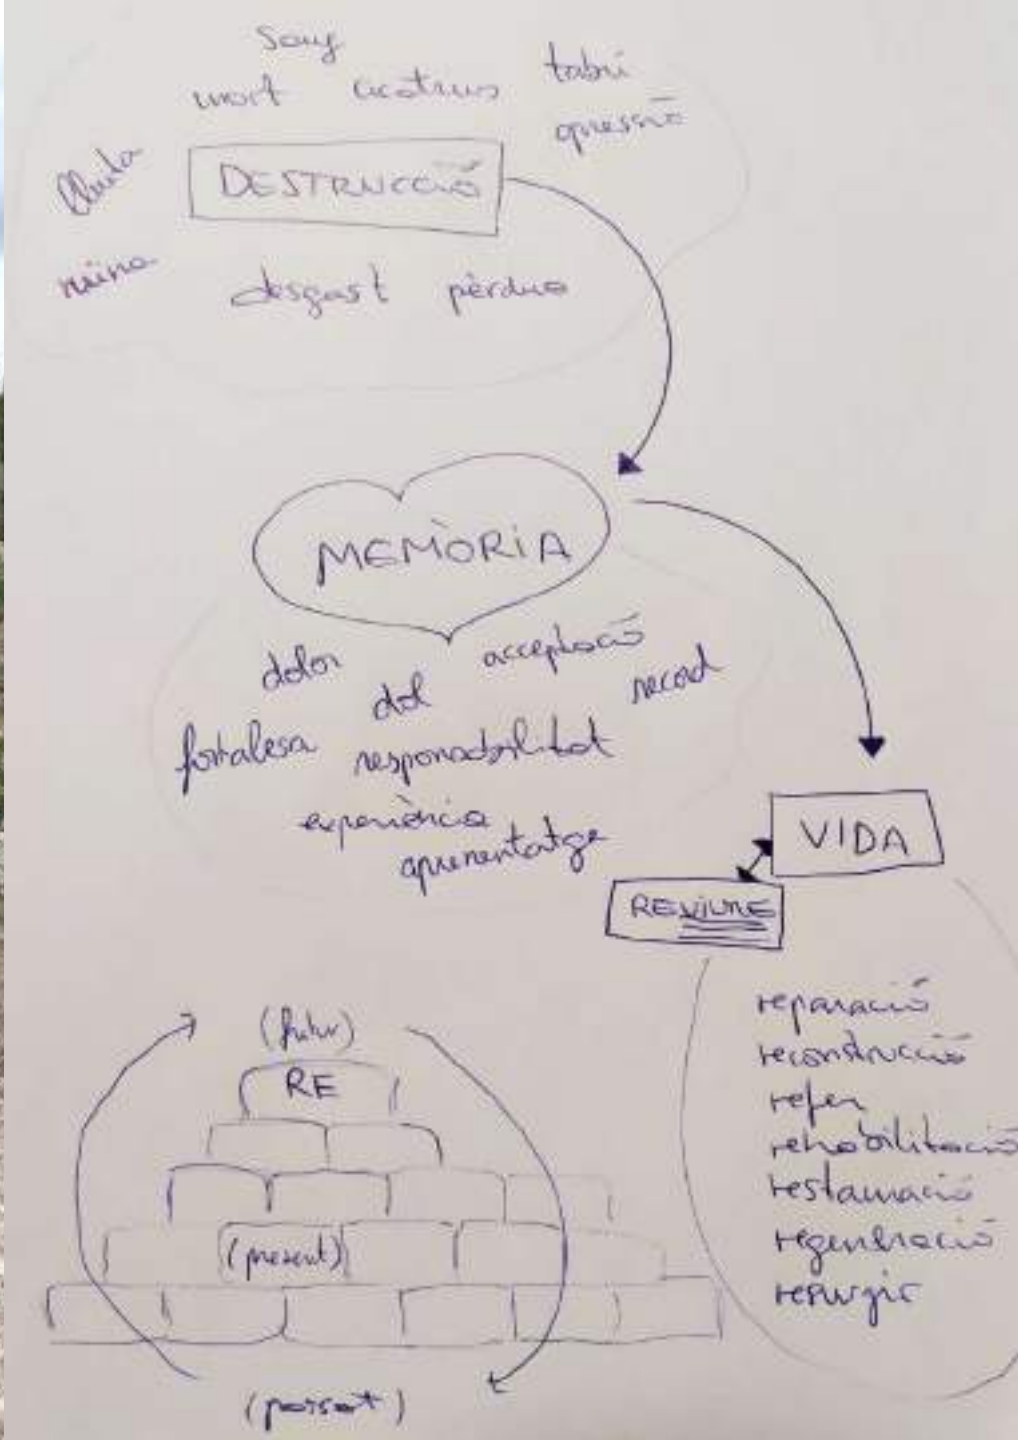 Sang
mort cicatrius tabú
opressió
lluita
DESTRUCCIÓ
ruïna
desgast pèrdua
MEMÒRIA
dolor dol acceptació record
fortalesa responsabilitat
experiència
aprenentatge
VIDA
REVIURE
reparació
reconstrucció
refer
rehabilitació
restauració
regeneració
resurgir
(futur)
RE
(present)
(passat)